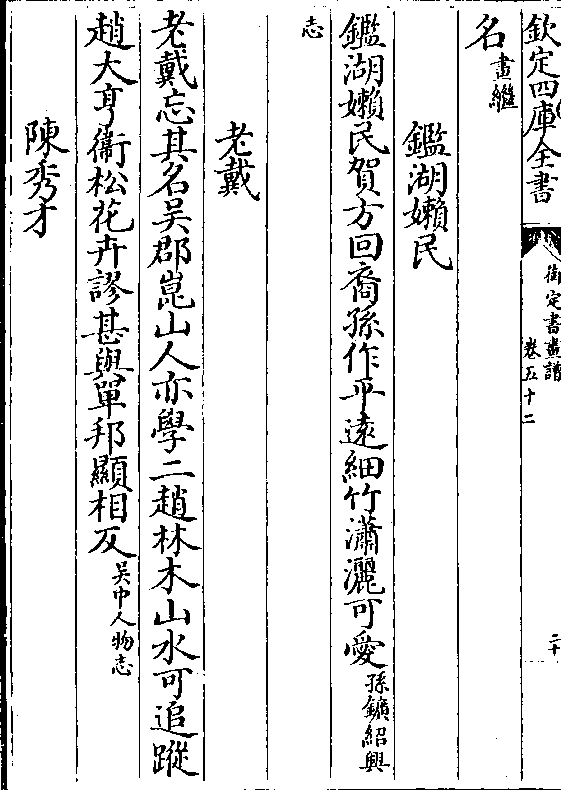 欽定四庫全書
御定書畫譜
卷五十二
二十
名畫繼
鑑湖嬾民
鑑湖嬾民賀方回裔孫作平遠細竹瀟灑可愛孫鑛紹興
志
老戴
老戴忘其名吳郡崑山人亦學二趙林木山水可追蹤
趙大亨衞松花卉謬甚與單邦顯相反吳中人物志
陳秀才